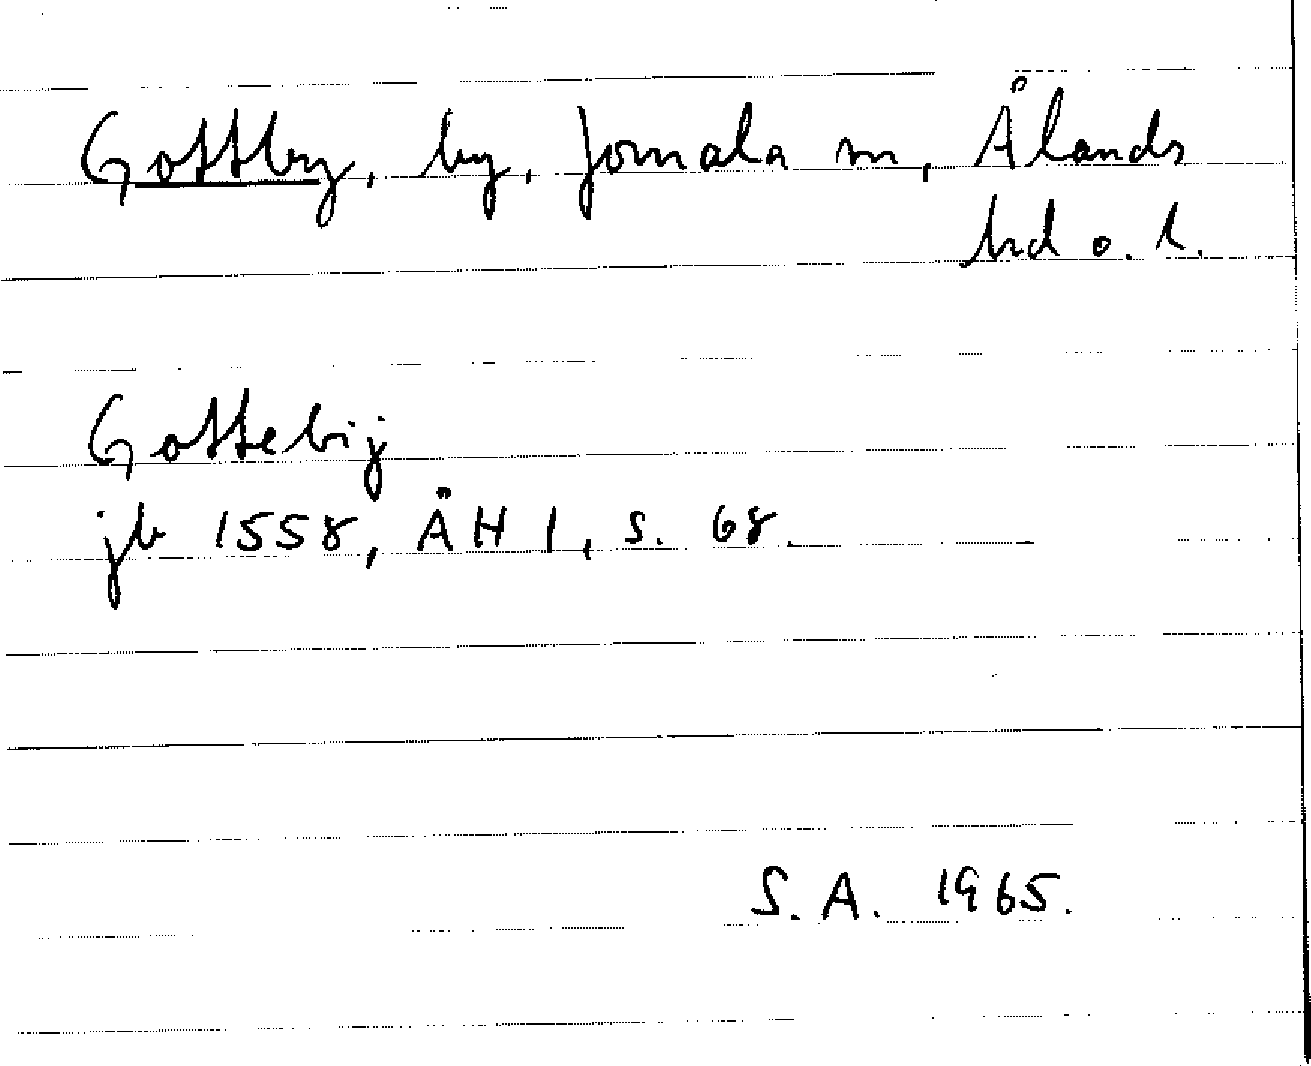 Gottby, by, Jomala sn, Ålands
hd o. l.
Gottebij
jb 1558, ÅH I, s. 68.
S.A. 1965.